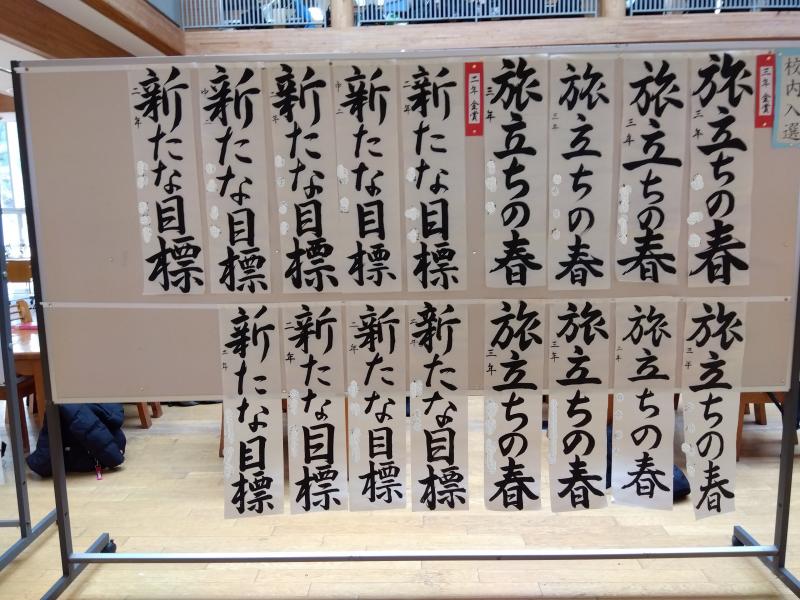 校内入選
三年 金賞
旅立ちの春
三年
旅立ちの春
三年
旅立ちの春
三年
旅立ちの春
三年
二年 金賞
新たな目標
二年
新たな目標
新たな目標
二年
新たな目標
新たな目標
二年
旅立ちの春
三年
旅立ちの春
三年
旅立ちの春
三年
旅立ちの春
三年
新たな目標
二年
新たな目標
二年
新たな目標
二年
新たな目標
二年